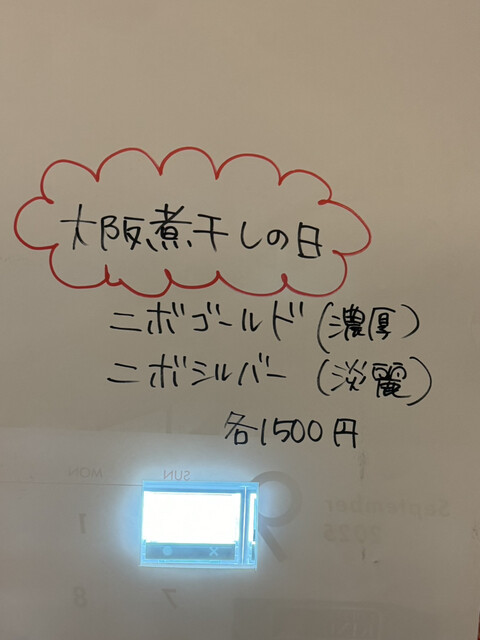 大阪煮干しの日
ニボゴールド(濃厚)
ニボシルバー(淡麗)
各1500円
SUN
MON
September
2025
9
1
7
8